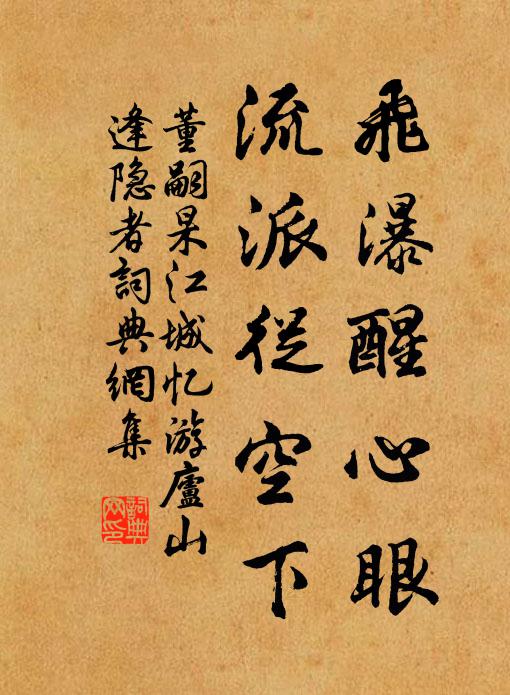 飛瀑醒心眼
流派從空下
董嗣杲江城忆游廬山
逢隐者詞典網集
詞典网印